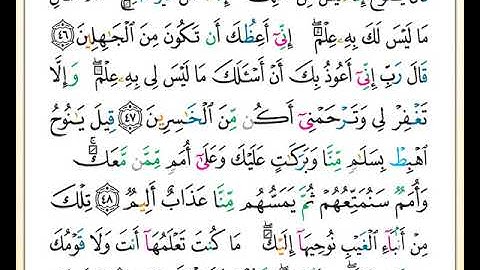 مَا لَيْسَ لَكَ بِهِۦ عِلْمٌ ۖ إِنِّىٓ أَعِظُكَ أَن تَكُونَ مِنَ ٱلْجَـٰهِلِينَ ۝٤٦
قَالَ رَبِّ إِنِّىٓ أَعُوذُ بِكَ أَنْ أَسْـَٔلَكَ مَا لَيْسَ لِى بِهِۦ عِلْمٌ ۖ وَإِلَّا
تَغْفِرْ لِى وَتَرْحَمْنِىٓ أَكُن مِّنَ ٱلْخَـٰسِرِينَ ۝٤٧ قِيلَ يَـٰنُوحُ
ٱهْبِطْ بِسَلَـٰمٍ مِّنَّا وَبَرَكَـٰتٍ عَلَيْكَ وَعَلَىٰٓ أُمَمٍ مِّمَّن مَّعَكَ ۚ
وَأُمَمٌ سَنُمَتِّعُهُمْ ثُمَّ يَمَسُّهُم مِّنَّا عَذَابٌ أَلِيمٌ ۝٤٨ تِلْكَ
مِنْ أَنۢبَآءِ ٱلْغَيْبِ نُوحِيهَآ إِلَيْكَ ۖ مَا كُنتَ تَعْلَمُهَآ أَنتَ وَلَا قَوْمُكَ